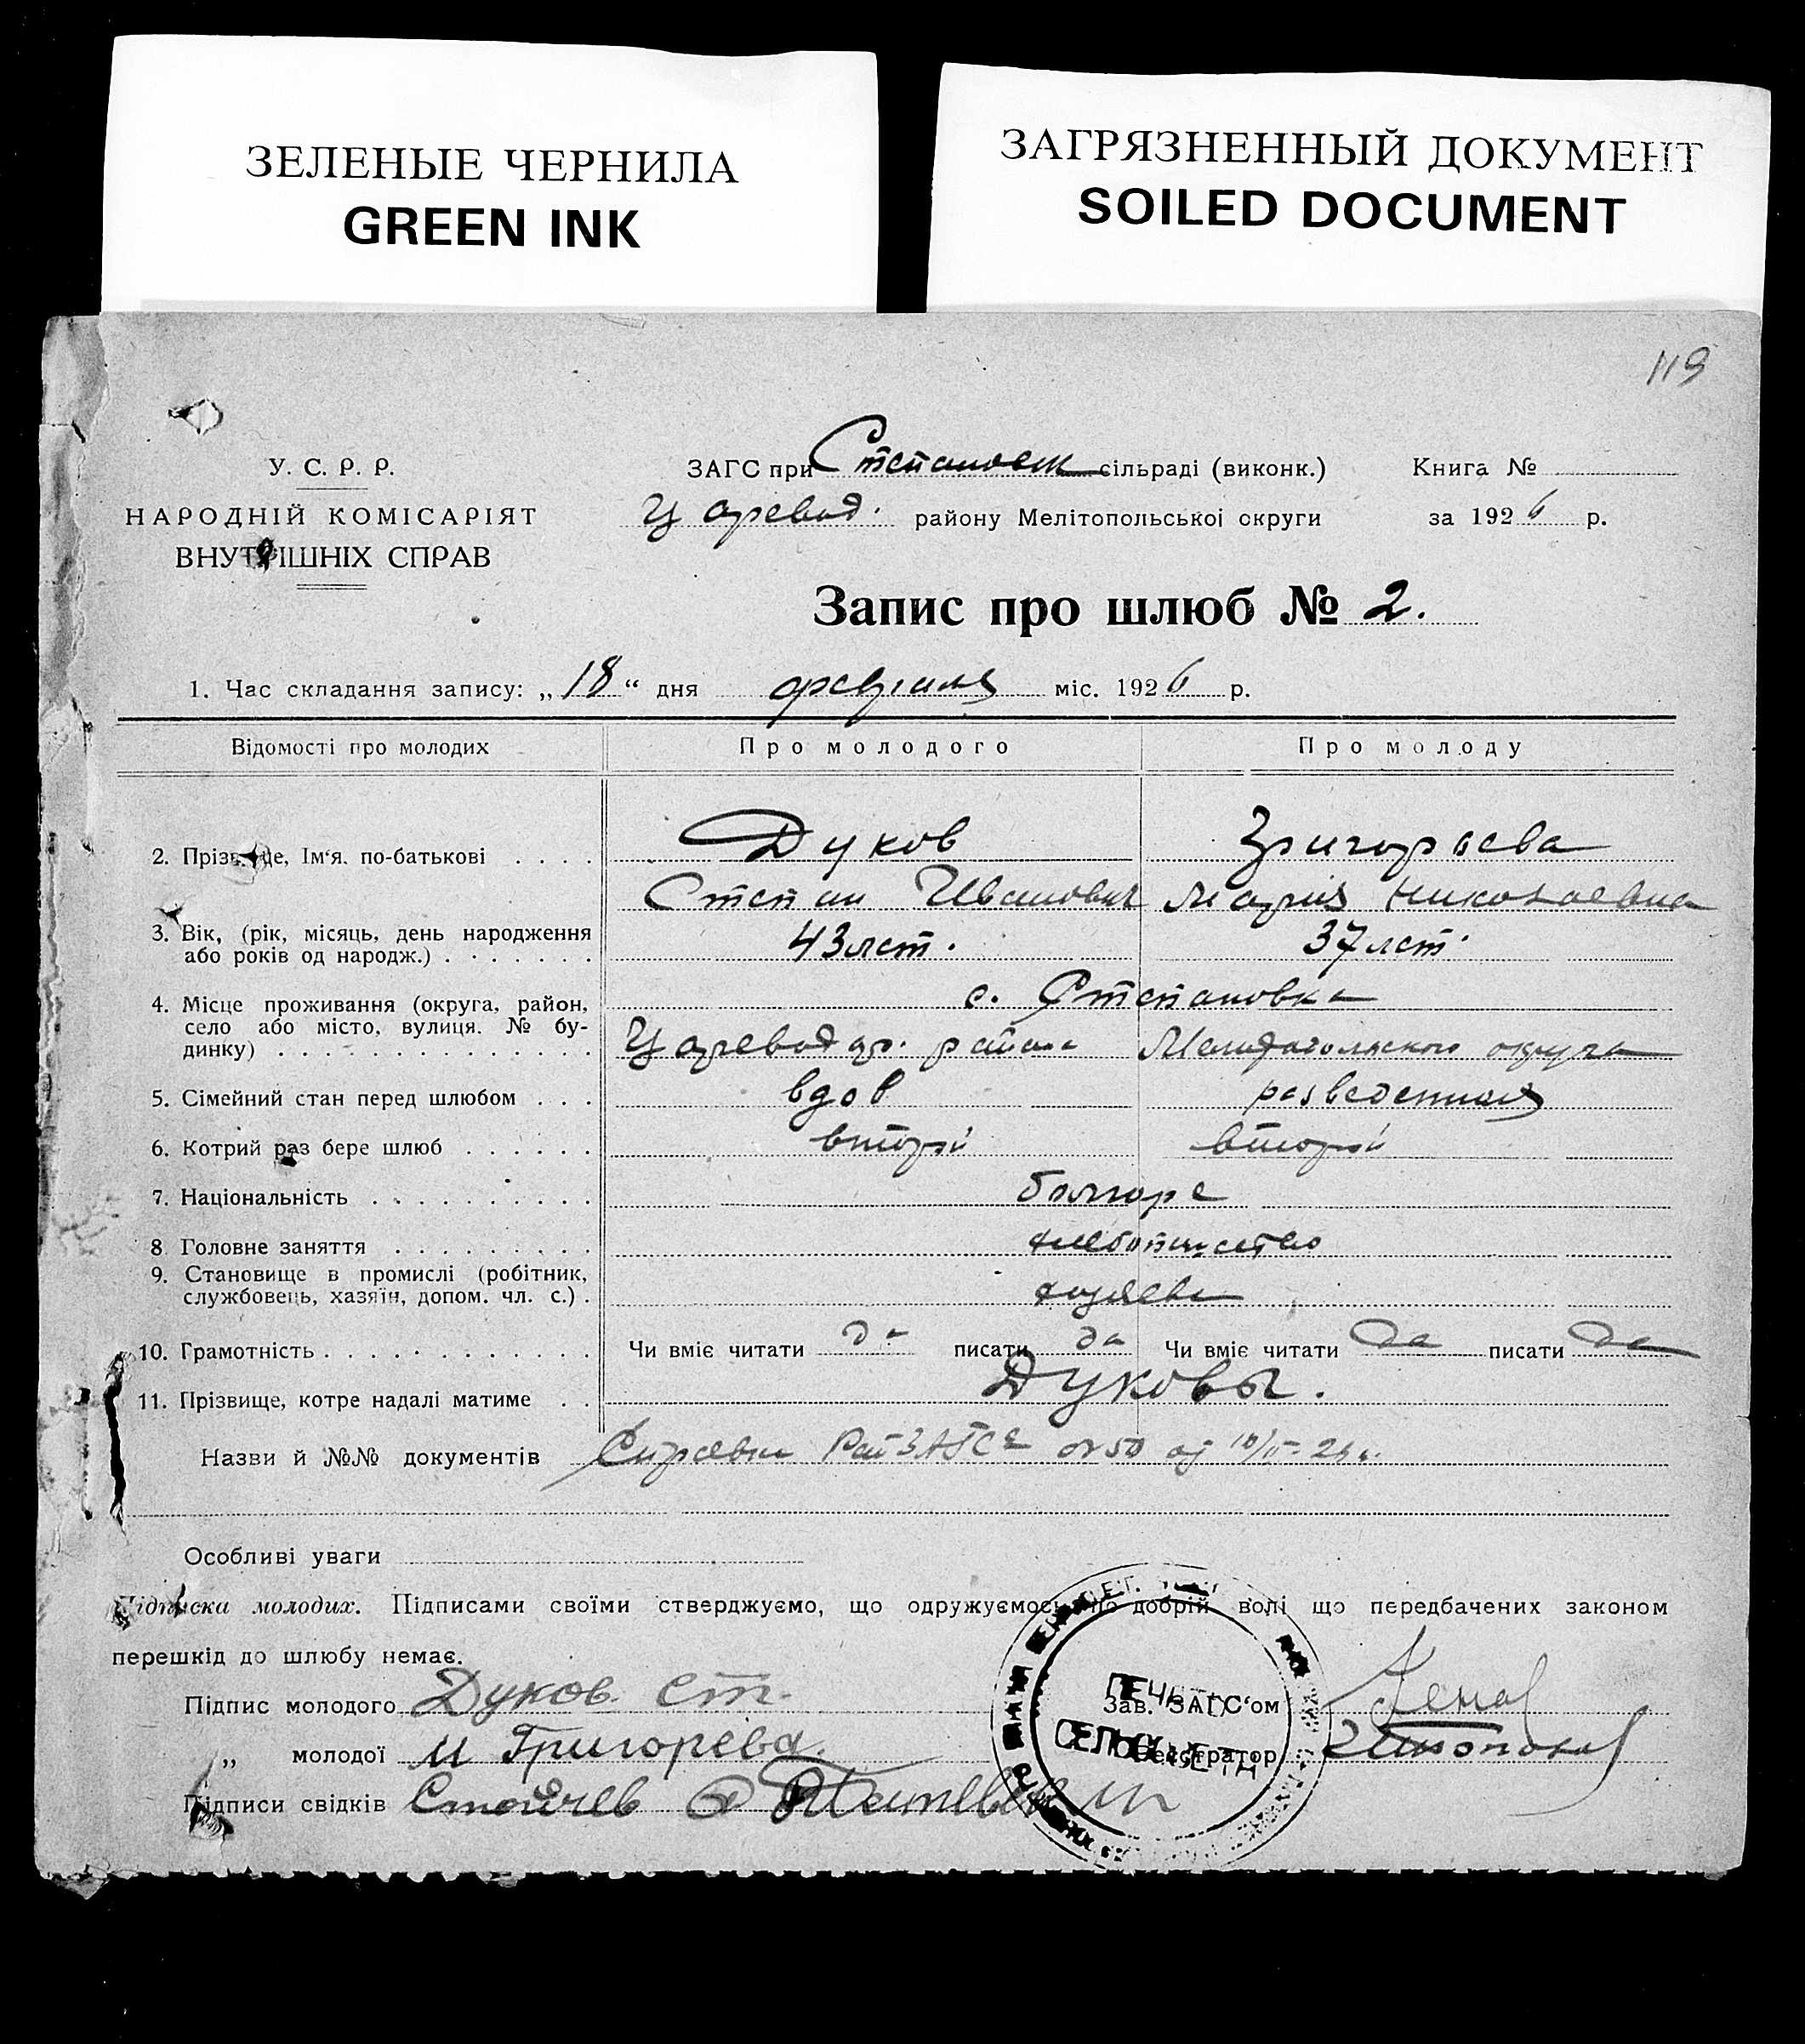 ЗЕЛЕНЫЕ ЧЕРНИЛА
GREEN INK
ЗАГРЯЗНЕННЫЙ ДОКУМЕНТ
SOILED DOCUMENT
119
У. С. Р. Р.
НАРОДНІЙ КОМІСАРІЯТ
ВНУТРІШНІХ СПРАВ
ЗАГС при Степановск сільраді (виконк.) Книга №
Царевод. району Мелітопольської округи за 1926 р.
Запис про шлюб № 2.
1. Час складання запису: „18“ дня февраля міс. 1926 р.
Відомості про молодих Про молодого Про молоду
2. Прізвище, Ім'я, по-батькові . . . . Дуков Григорьева
Степан Иванович Мария Николаевна
3. Вік, (рік, місяць, день народження 43 лет. 37 лет.
або років од народж.) . . . . . . .
4. Місце проживання (округа, район, с. Степановка
село або місто, вулиця. № бу-
динку) . . . . . . . . . . . . . . Цареводар. района Мелитопольского округа
5. Сімейний стан перед шлюбом . . . вдов разведенная
6. Котрий раз бере шлюб . . . . . . вторй вторй
7. Національність . . . . . . . . . . болгаре
8. Головне заняття . . . . . . . . . хлебопашество
9. Становище в промислі (робітник,
службовець, хазяїн, допом. чл. с.) . хозяева
10. Грамотність . . . . . . . . . . . . Чи вміє читати да писати да Чи вміє читати да писати да
11. Прізвище, котре надалі матиме . . Дуковы.
Назви й №№ документів Справка РайЗАГСа № 50 от 10/II-26 г.
Особливі уваги
Підписка молодих. Підписами своїми стверджуємо, що одружуємось по добрій волі що передбачених законом
перешкід до шлюбу немає.
Підпис молодого Дуков Ст. Зав. ЗАГС'ом
„ молодої М Григорева. Реєстратор
Підписи свідків Стойчев
ПЕЧАТЬ